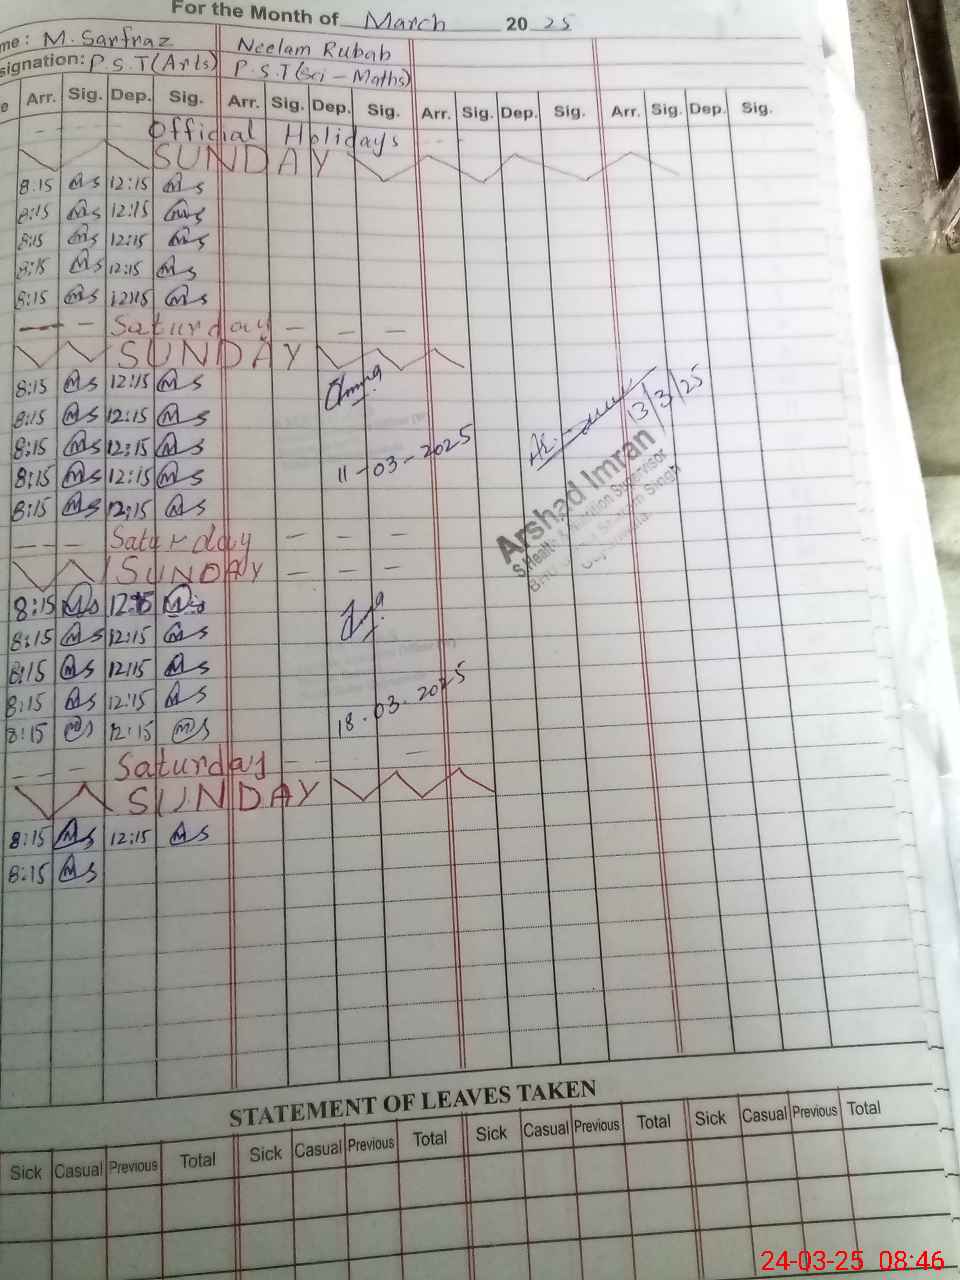 For the Month of March 2025
me: M. Sarfraz Neelam Rubab
signation: P.S.T (Arts) P.S.T (Sci - Maths)
e Arr. Sig. Dep. Sig. Arr. Sig. Dep. Sig. Arr. Sig. Dep. Sig. Arr. Sig. Dep. Sig.
Official Holidays
SUNDAY
8:15 Ms 12:15 Ms
8:15 Ms 12:15 Ms
8:15 Ms 12:15 Ms
8:15 Ms 12:15 Ms
8:15 Ms 12:15 Ms
Saturday
SUNDAY
8:15 Ms 12:15 Ms
8:15 Ms 12:15 Ms
13/3/25
8:15 Ms 12:15 Ms
8:15 Ms 12:15 Ms 11-03-2025
8:15 Ms 12:15 Ms
Arshad Imran
Saturday
SUNDAY
8:15 Ms 12:15 Ms
8:15 Ms 12:15 Ms
8:15 Ms 12:15 Ms
8:15 Ms 12:15 Ms
8:15 Ms 12:15 Ms 18.03.2025
Saturday
SUNDAY
8:15 Ms 12:15 Ms
8:15 Ms
STATEMENT OF LEAVES TAKEN
Sick Casual Previous Total Sick Casual Previous Total Sick Casual Previous Total Sick Casual Previous Total
24-03-25 08:46